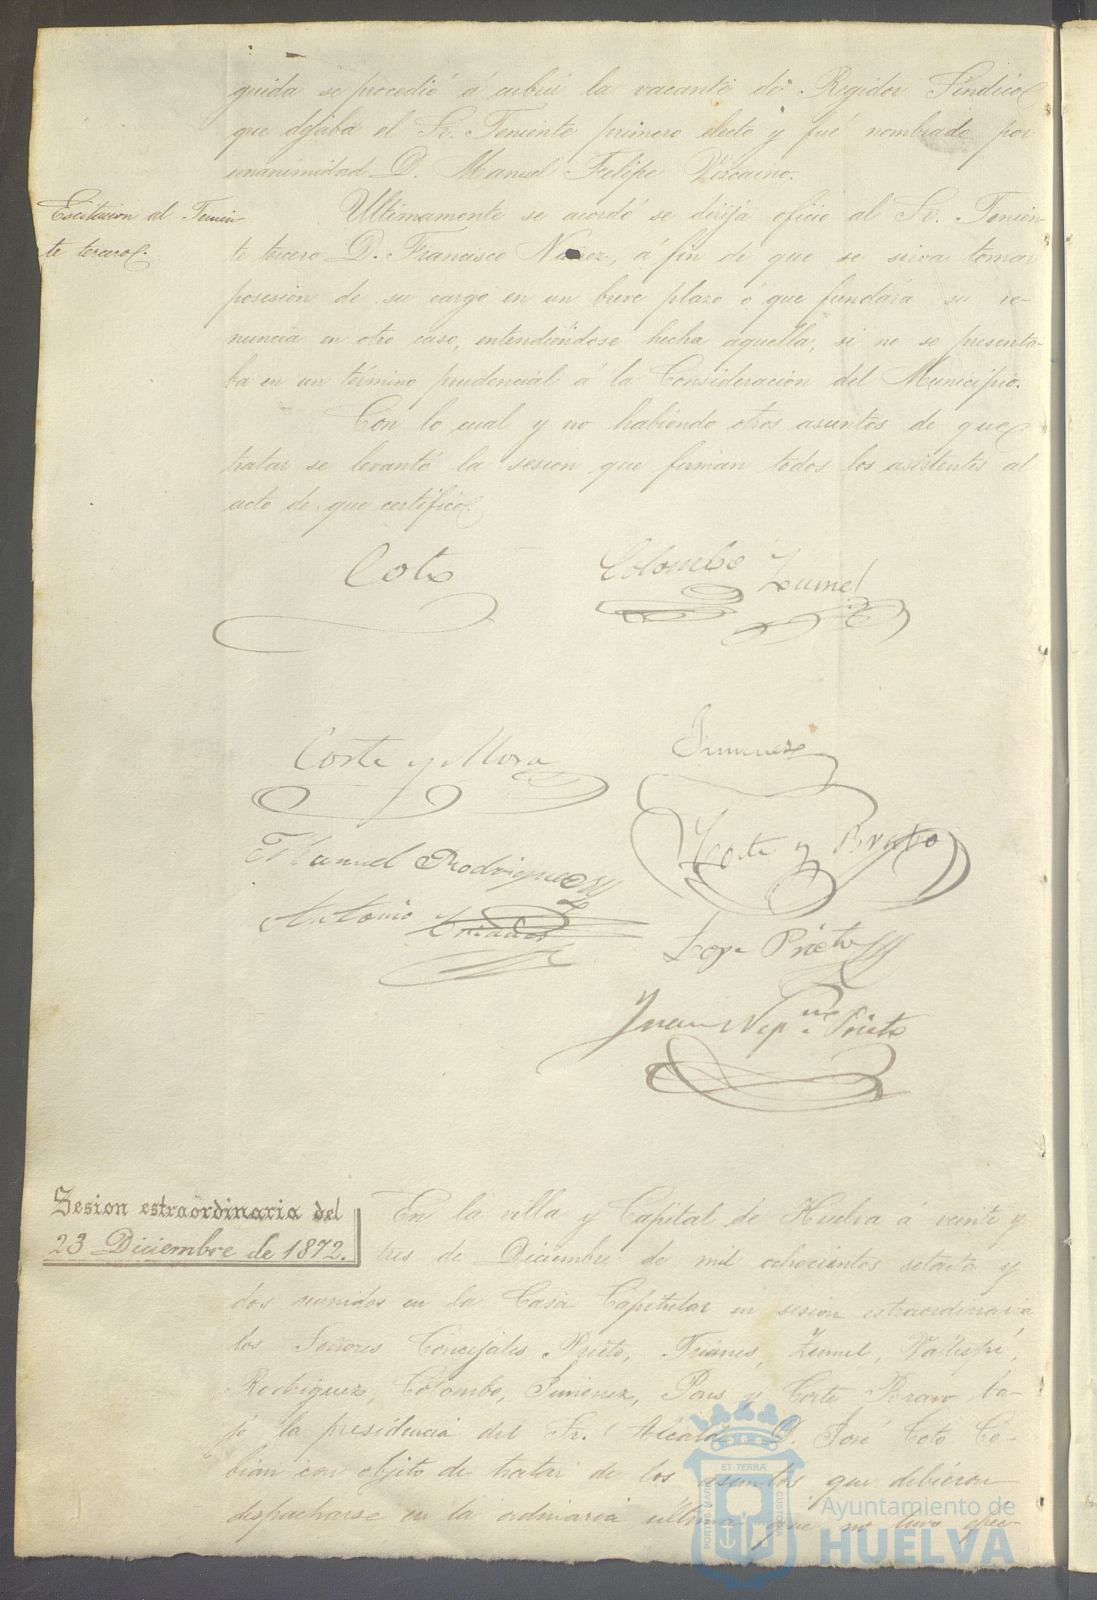 guida se procedió á cubrir la vacante de Regidor Síndico
que dejaba el Sr. Teniente primero electo y fué nombrado por
unanimidad D. Manuel Felipe Vizcaino.
Escitacion al Tenien-
te tercero.
Ultimamente se acordó se dirija oficio al Sr. Tenien-
te tercero D. Francisco Nuñez, á fin de que se sirva tomar
posesion de su cargo en un breve plazo ó que fundára su re-
nuncia en otro caso, entendiéndose hecha aquella, si no se presenta-
ba en un término prudencial á la Consideracion del Municipio.
Con lo cual y no habiendo otros asuntos de que
tratar se levantó la sesion que firman todos los asistentes al
acto de que certifico.
Coto
Colombo
Zumel
Corte y Mora
Jimenez
Corte y Bravo
Manuel Rodriguez
Antonio Trianes
Lope Prieto
Juan Nep.ne Prieto
Sesion estraordinaria del
23 Diciembre de 1872.
En la villa y Capital de Huelva á veinte y
tres de Diciembre de mil ochocientos setenta y
dos reunidos en la Casa Capitular en sesion estraordinaria
los Señores Concejales Prieto, Trianes, Zumel,
Rodriguez, Colombo, Jimenez, Pons y Corte Bravo ba-
jo la presidencia del Sr. Alcalde D. José Coto Co-
bian con objeto de tratar de los asuntos que debieron
despacharse en la ordinaria última que no tuvo efec-
PORTUS MARIS
ET TERRÆ
CUSTODIA
Ayuntamiento de
HUELVA